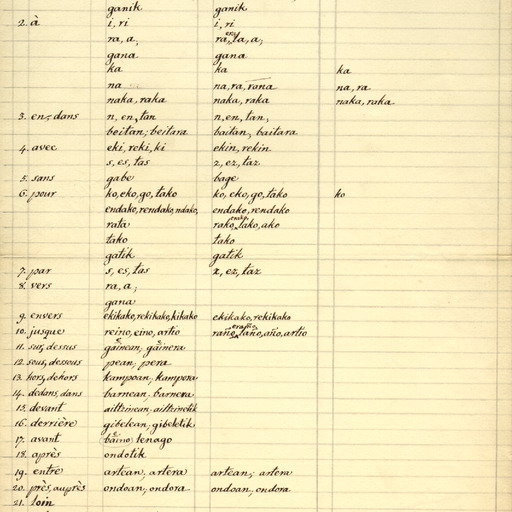 ganik ganik
2. à i, ri i, ri
ra, a; ra, era ta, a;
gana gana
ka ka ka
na na, ra, rana na, ra
naka, raka naka, raka naka, raka
3. en, dans n, en, tan n, en, tan;
beitan, beitara baitan, baitara
4. avec eki, reki, ki ekin, rekin
s, es, tas z, ez, taz
5. sans gabe bage
6. pour ko, eko, go, tako ko, eko, go, tako ko
endako, rendako, ndako, endako, rendako
rata rako, tako, ako
tako tako
gatik gatik
7. par s, es, tas z, ez, taz
8. vers ra, a;
gana
9. envers ekikako, rekikako, kikako ekikako, rekikako
10. jusque reino, eino, artio raño, eraño, taño, año, artio
11. sur, dessus gainean, gainera
12. sous, dessous pean, pera
13. hors, dehors kampoan, kampera
14. dedans, dans barnean, barnera
15. devant aitzinean, aitzinetik
16. derrière gibelean, gibeletik
17. avant baino, lenago
18. après ondotik
19. entre artean, artera artean, artera
20. près, auprès ondoan, ondora ondoan, ondora
21. loin